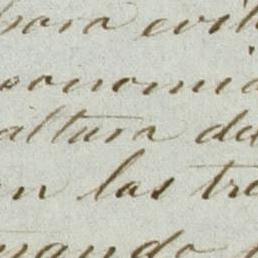 para evit
conomia
altura de
en las tre
mando